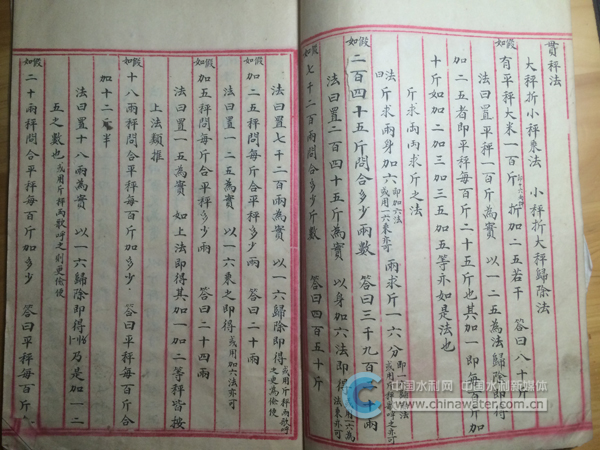 貫秤法
大秤折小秤乘法　小秤折大秤歸除法
假如有平秤大米一百斤　折加二五若干　答曰八十斤
法曰置平秤一百斤為實　以一二五為法歸除即得
加二五者即平秤每百斤二十五斤也其加一即每百斤加
十斤如加二加三加三五加五等亦如是法也
斤求兩兩求斤之法
法斤求兩身加六　兩求斤一六分
假如二百四十五斤問合多少兩數　答曰三千九百二十
法曰置二百四十五斤為實　以身加六法即得
假如七千二百兩問合多少斤數　答曰四百五十斤
法曰置七千二百兩為實　以一六歸除即得或用斤秤兩歌呼之更為愉使
假如加二五秤問每斤合平秤多少兩　答曰二十兩
法曰置一二五為實　以一六乘之即得或用加六法亦可
假如加五秤問每斤合平秤多少兩　答曰二十四兩
法曰置一五為實　如上法即得其加一加二等秤皆按
上法類推
假如十八兩秤問合平秤每百斤加多少　答曰平秤每百斤合
加十二斤半
法曰置十八兩為實　以一六歸除即得　乃是加一二
五之數也或用斤秤兩歌呼之則更愉使
假如二十兩秤問合平秤每百斤加多少　答曰平秤每百斤
中国水利网　中国水利新媒体
www.chinawater.com.cn